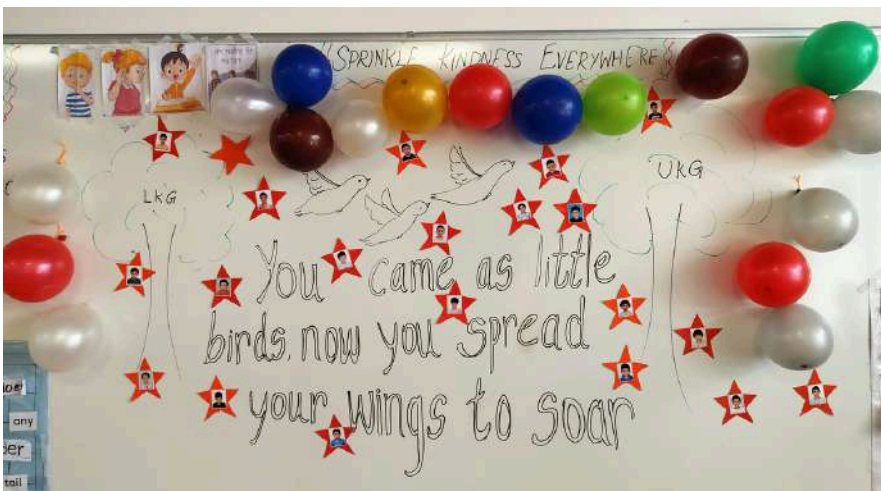 "SPRINKLE KINDNESS EVERYWHERE"
LKG
UKG
You came as little
birds, now you spread
your wings to soar
any
tail